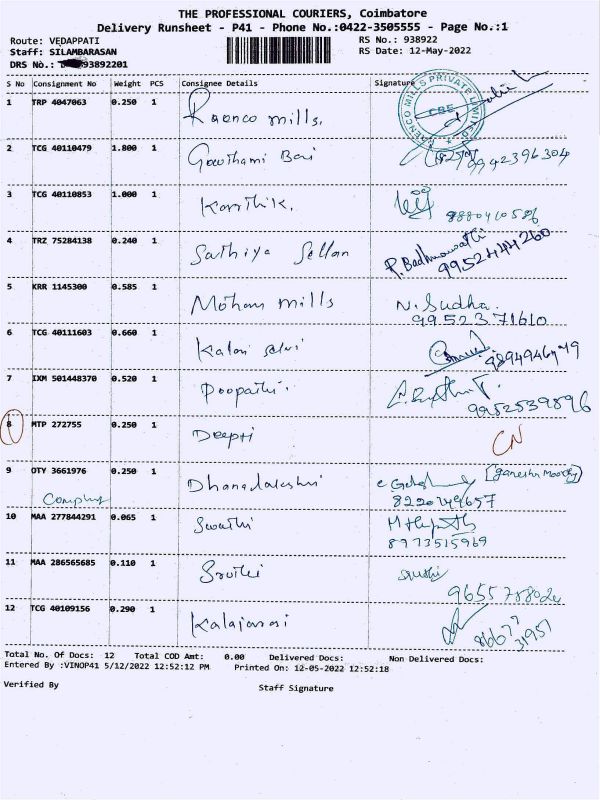 THE PROFESSIONAL COURIERS, Coimbatore
Delivery Runsheet - P41 - Phone No.:0422-3505555 - Page No.:1
Route: VEDAPPATI RS No.: 938922
Staff: SILAMBARASAN RS Date: 12-May-2022
DRS No.: 93892201
S No Consignment No Weight PCS Consignee Details Signature
1 TRP 4047063 0.250 1 Raenco mills.
NAENCO MILLS PRIVATE LIMITED
CBE
2 TCG 40110479 1.800 1 Gowthami Bari 9942396304
3 TCG 40110853 1.000 1 Karthik. 8880410586
4 TRZ 75284138 0.240 1 Sathiya Sellan P. Badhmavathi
9952444260
5 KRR 1145300 0.585 1 Mohan mills N. Sudha.
9952371610
6 TCG 40111603 0.660 1 Kalai selvi
7 IXM 501448370 0.520 1 Poopathi.
9952539896
8 MTP 272755 0.250 1 Deepti CN
9 OTY 3661976 0.250 1 Dhanadalakshmi [Ganesha Moorthy]
8220749657
10 MAA 277844291 0.065 1 Swathi
8973515969
11 MAA 286565685 0.110 1 Sruthi Sruthi
12 TCG 40109156 0.290 1 Kalaiarasi
Total No. Of Docs: 12 Total COD Amt: 0.00 Delivered Docs: Non Delivered Docs:
Entered By :VINOP41 5/12/2022 12:52:12 PM Printed On: 12-05-2022 12:52:18
Verified By Staff Signature